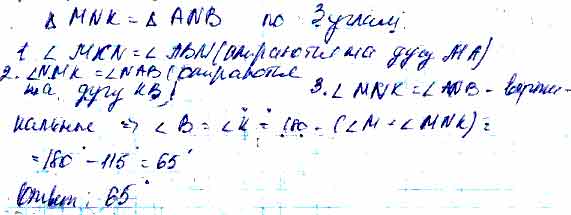 Δ MNK = Δ ANB по 3 углам.
1. ∠ MKN = ∠ ABN (опираются на дугу MA)
2. ∠NMK = ∠NAB (опираются
на дугу KB) 3. ∠ MNK = ∠ANB - верти-
кальные ⇒ ∠ B = ∠K = 180° - (∠M + ∠MNK) =
= 180° - 115° = 65°
Ответ: 65°